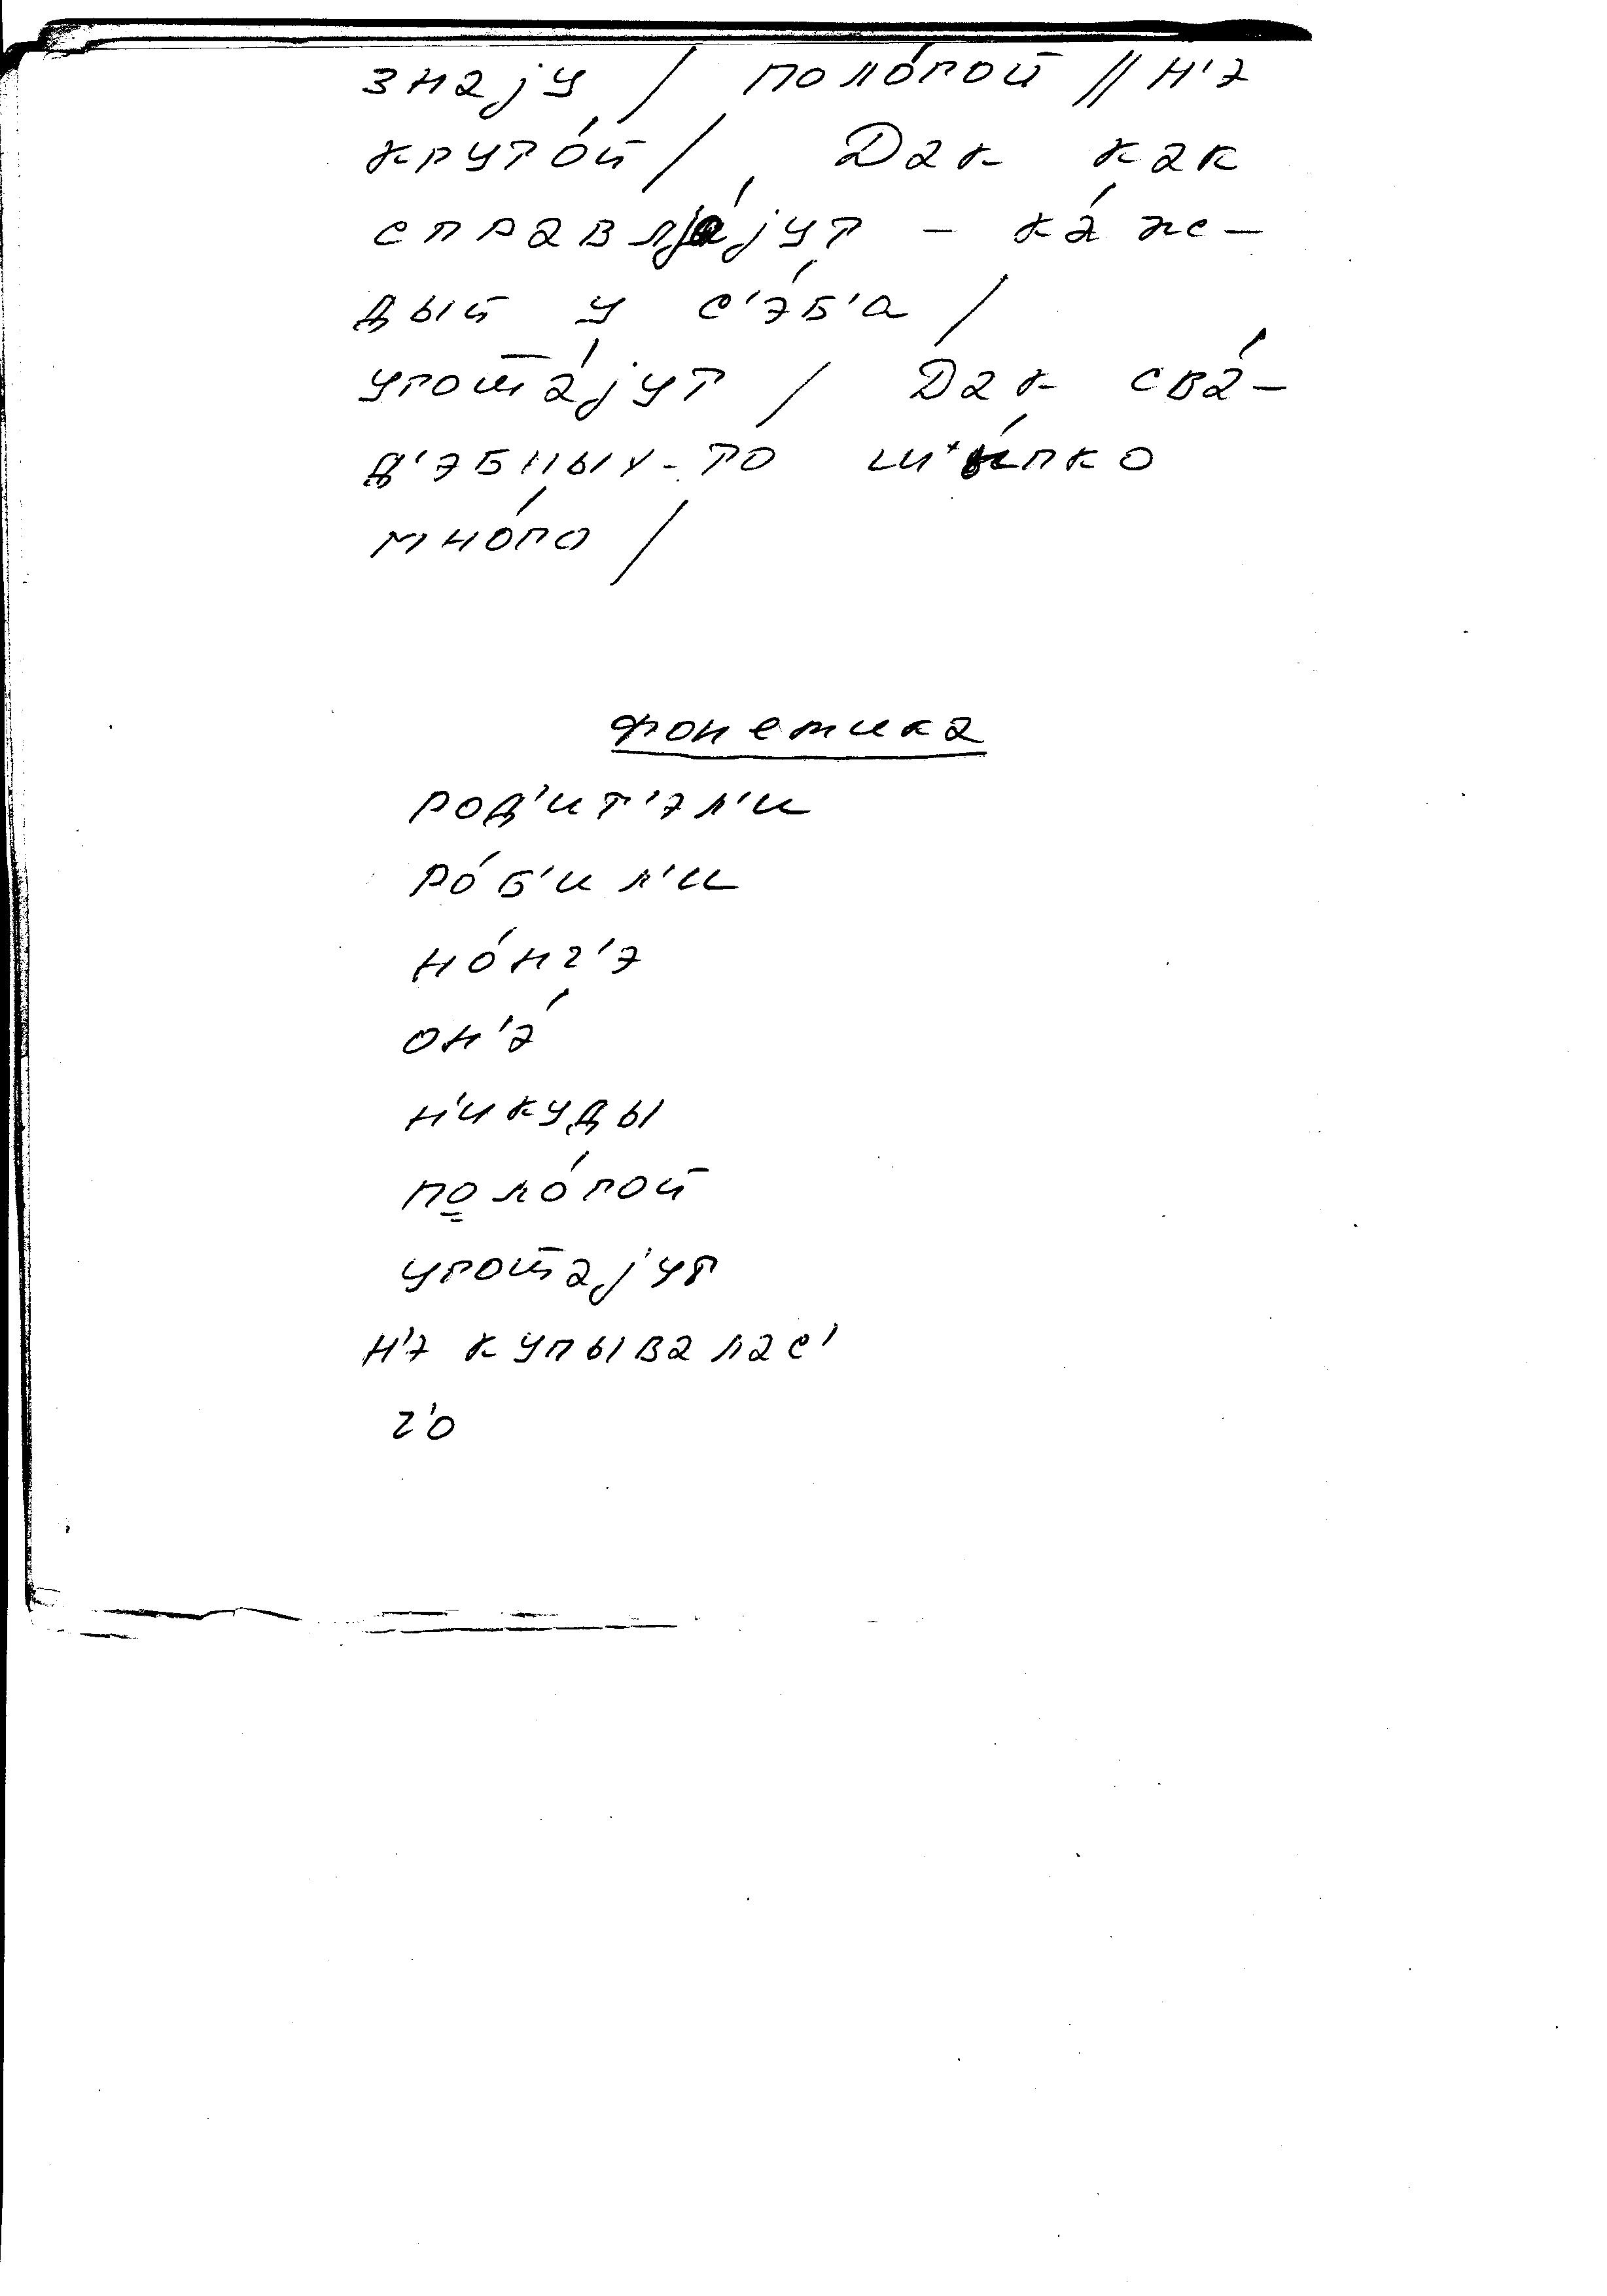 знаjу / поло́гой // н'э
круто́й / Дак как
справлjа́jут – ка́ж–
дый у с'э́б'а /
угош̅а́jут / Дак сва́–
д'эбных-то ш'ы́пко
мно́го /
фонетика
род'ит'эл'и
ро́б'ил'и
но́нч'э
он'э́
н'икуды
поло́гой
угош̅аjут
н'э купывалас'
ч'о